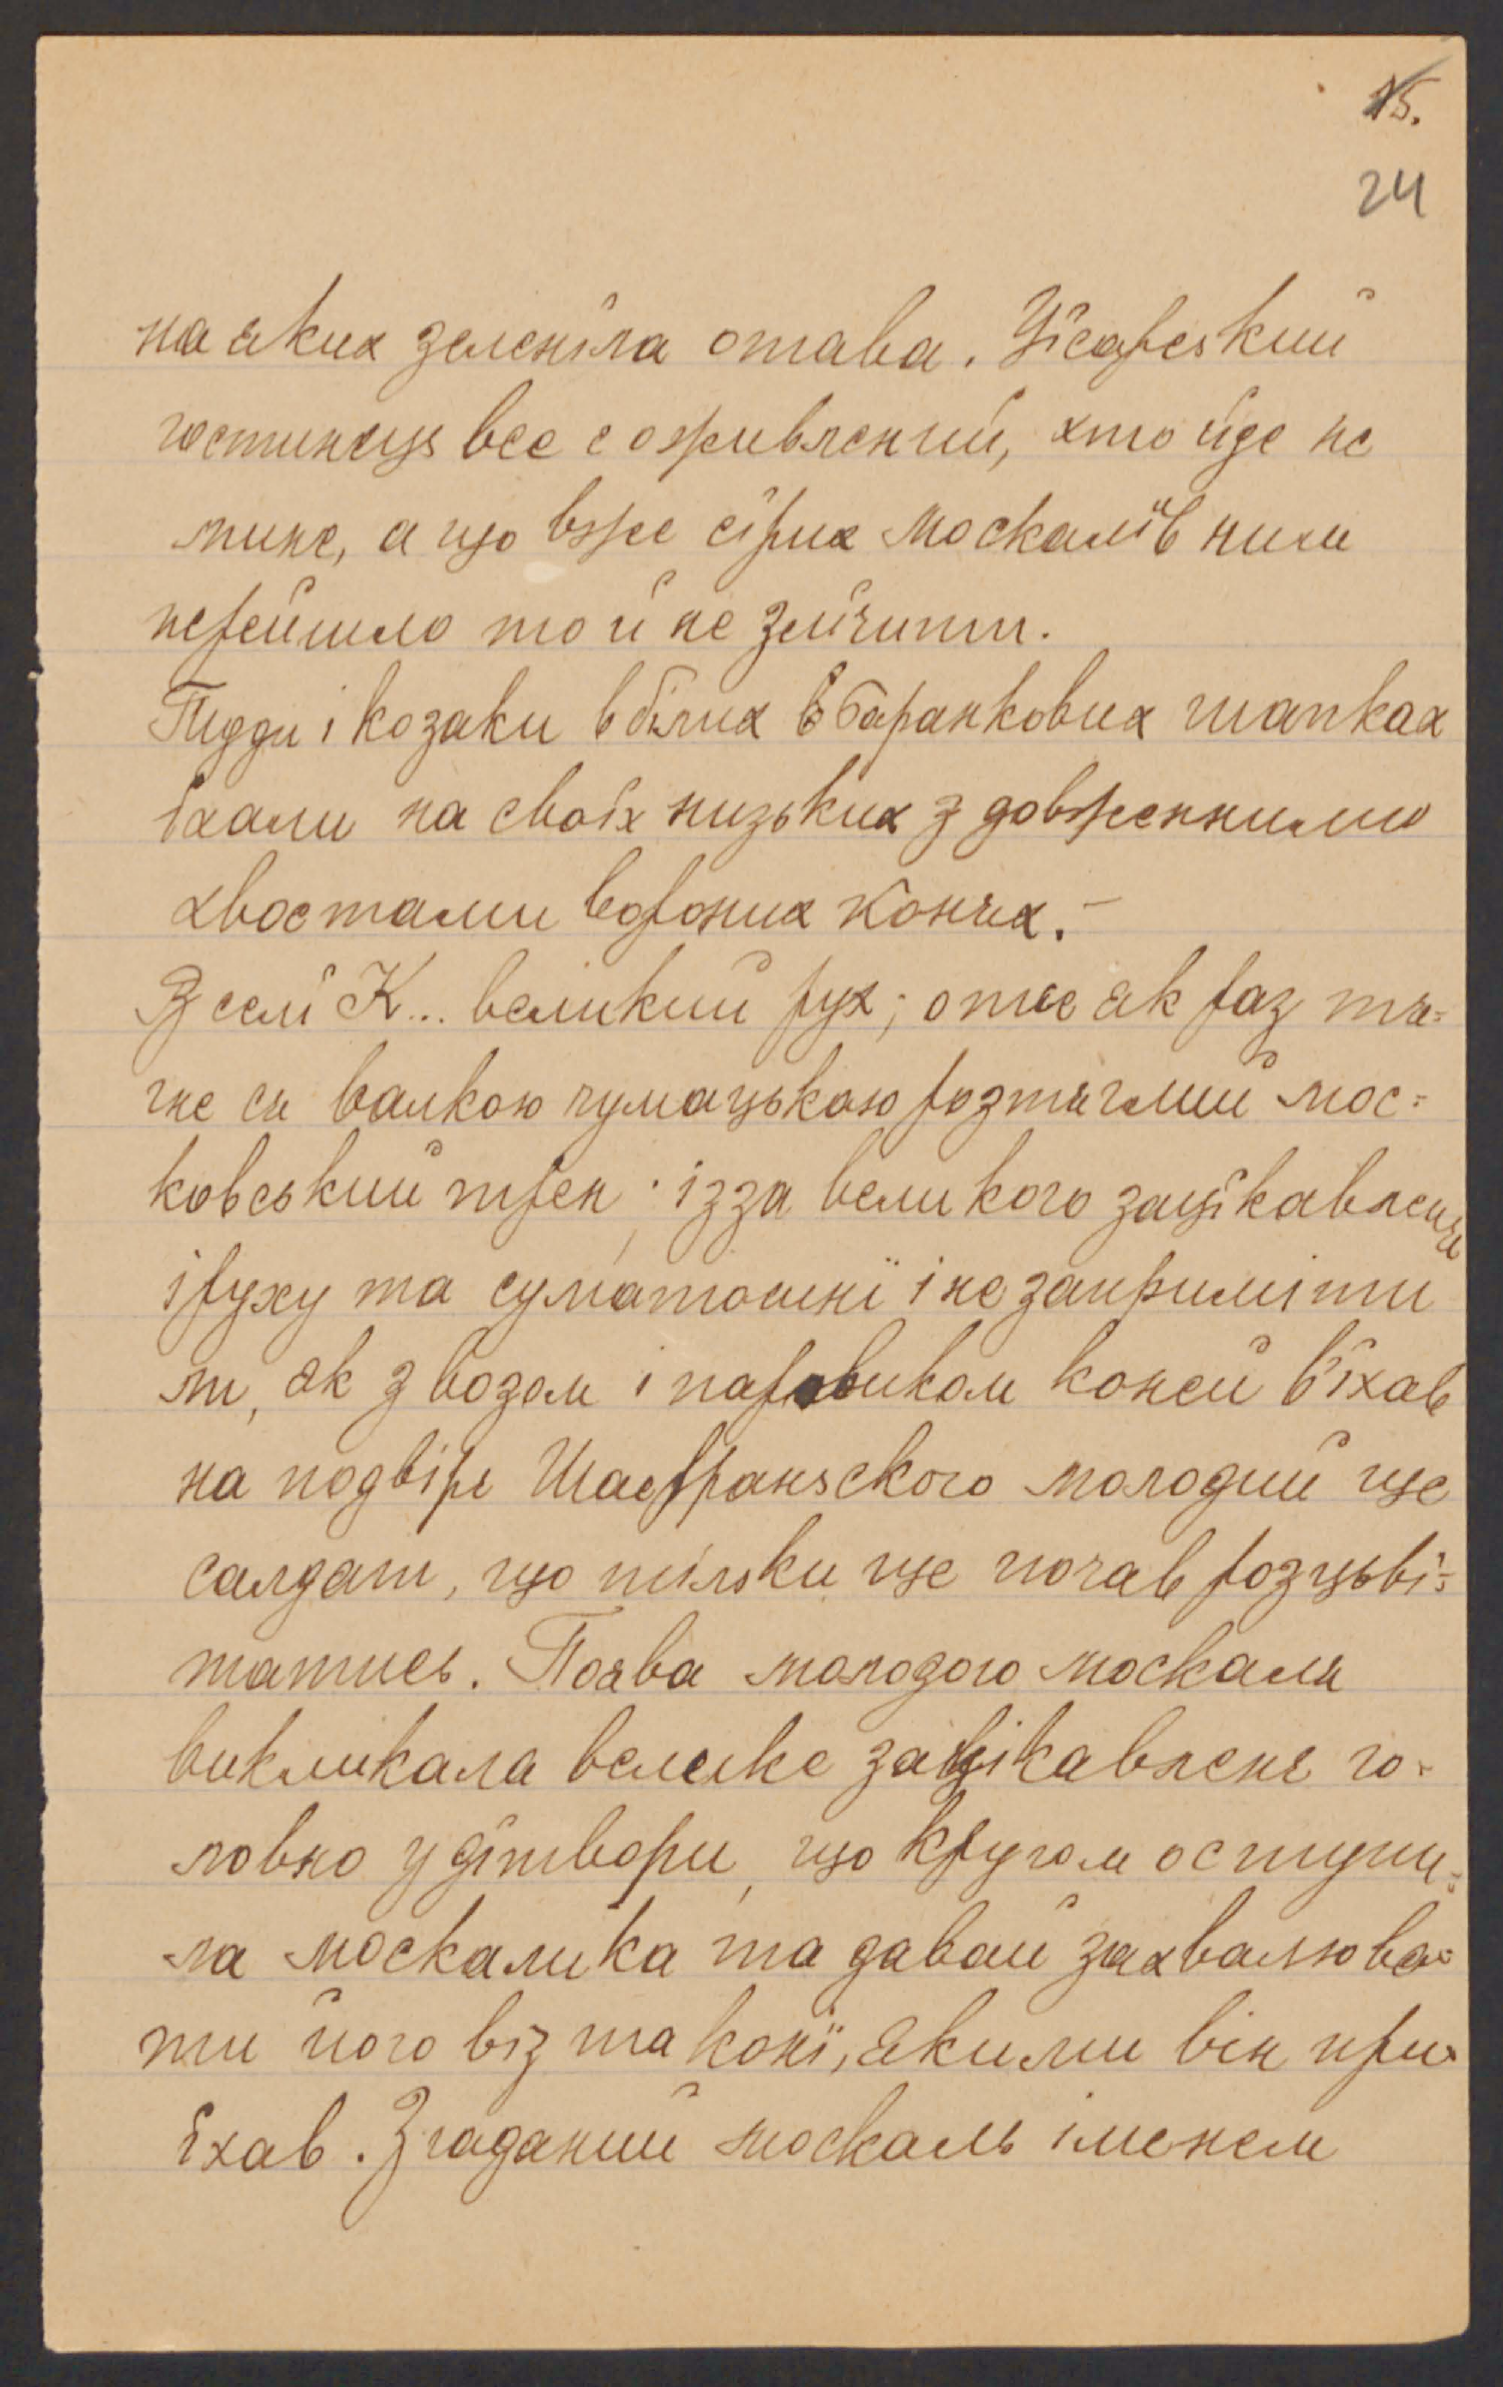 15.
24
на яких зеленіла отава. Цїсарський
гостинець все є оживлений, хто йде не
мине, а що вже сїрих москалїв ними
перейшло то й не злїчити.
Пізди і козаки в білих баранкових шапках
їхали на своїх низьких з довженними
хвостами вороних конях.–
В селї К... великий рух; отже як раз тя=
гне ся валкою чумацькою розтяглий мос=
ковський трен; із за великого зацїкавленя
і руху та суматошнї і не запримітили
ли, як з возом і паровиком коней в'їхав
на подвірє Шафраньского молодий ще
салдат, що тільки ще почав розцьві=
татись. Поява молодого москаля
викликала велике зацікавленє го=
ловно у дїтвори, що кругом оступи=
ла москалика та давай захвалюва=
ти його віз та конї, якими він при=
їхав. Згаданий москаль іменем